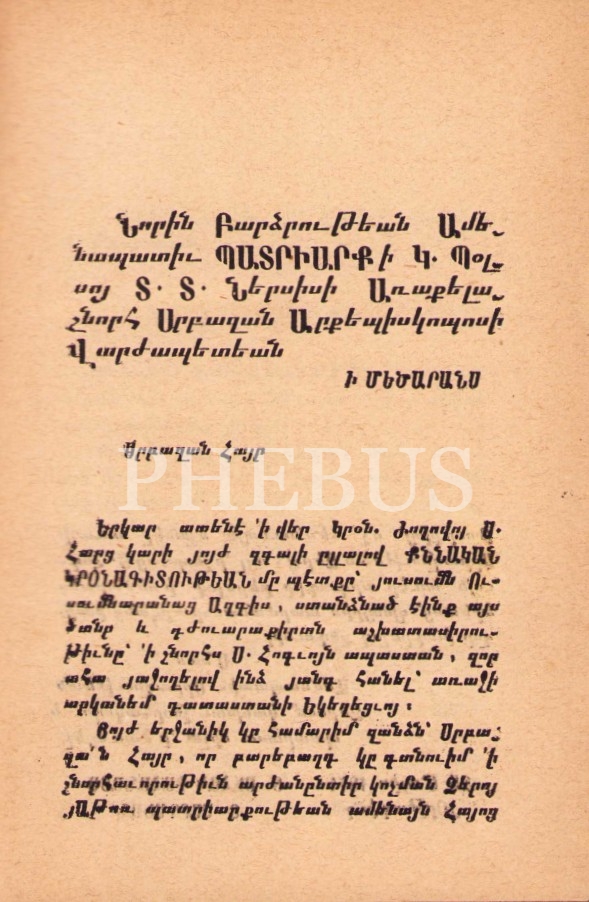 Նորին Բարձրութեան Ամե֊
նապատիւ ՊԱՏՐԻԱՐՔի Կ. Պօլ֊
սոյ Տ. Տ. Ներսիսի Առաքելա֊
շնորհ Սրբազան Արքեպիսկոպոսի
Վարժապետեան
Ի ՄԵԾԱՐԱՆՍ
Սրբազան Հայր
PHEBUS
Երկար ատենէ 'ի վեր Կրօն. Ժողովոյ Ս.
Հարց կարի յոյժ զգալի ըլլալով ՔՆՆԱԿԱՆ
ԿՐՕՆԱԳԻՏՈՒԹԵԱՆ մը պէտքը՝ յուսումն Ու֊
սումնարանաց Ազգիս, ստանձնած էինք այս
ծանր և դժուարակիրտն աշխատասիրու֊
թիւնը՝ 'ի շնորհս Ս. Հոգւոյն ապաստան, զոր
ահա յաջողելով ինձ յանգ հանել՝ առաջի
արկանեմ դատաստանի Եկեղեցւոյ։
Յոյժ երջանիկ կը համարիմ զանձն՝ Սրբա֊
զա՛ն Հայր, որ բարեբաղդ կը գտնուիմ 'ի
շնորհաւորութիւն արժանընտիր կոչման Ձերոյ
յԱթոռ պատրիարքութեան ամենայն Հայոց